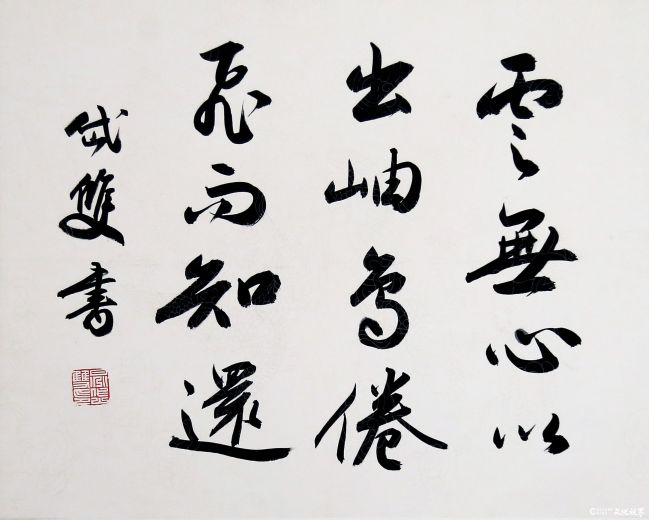 雲無心以
出岫鳥倦
飛而知還
成雙書